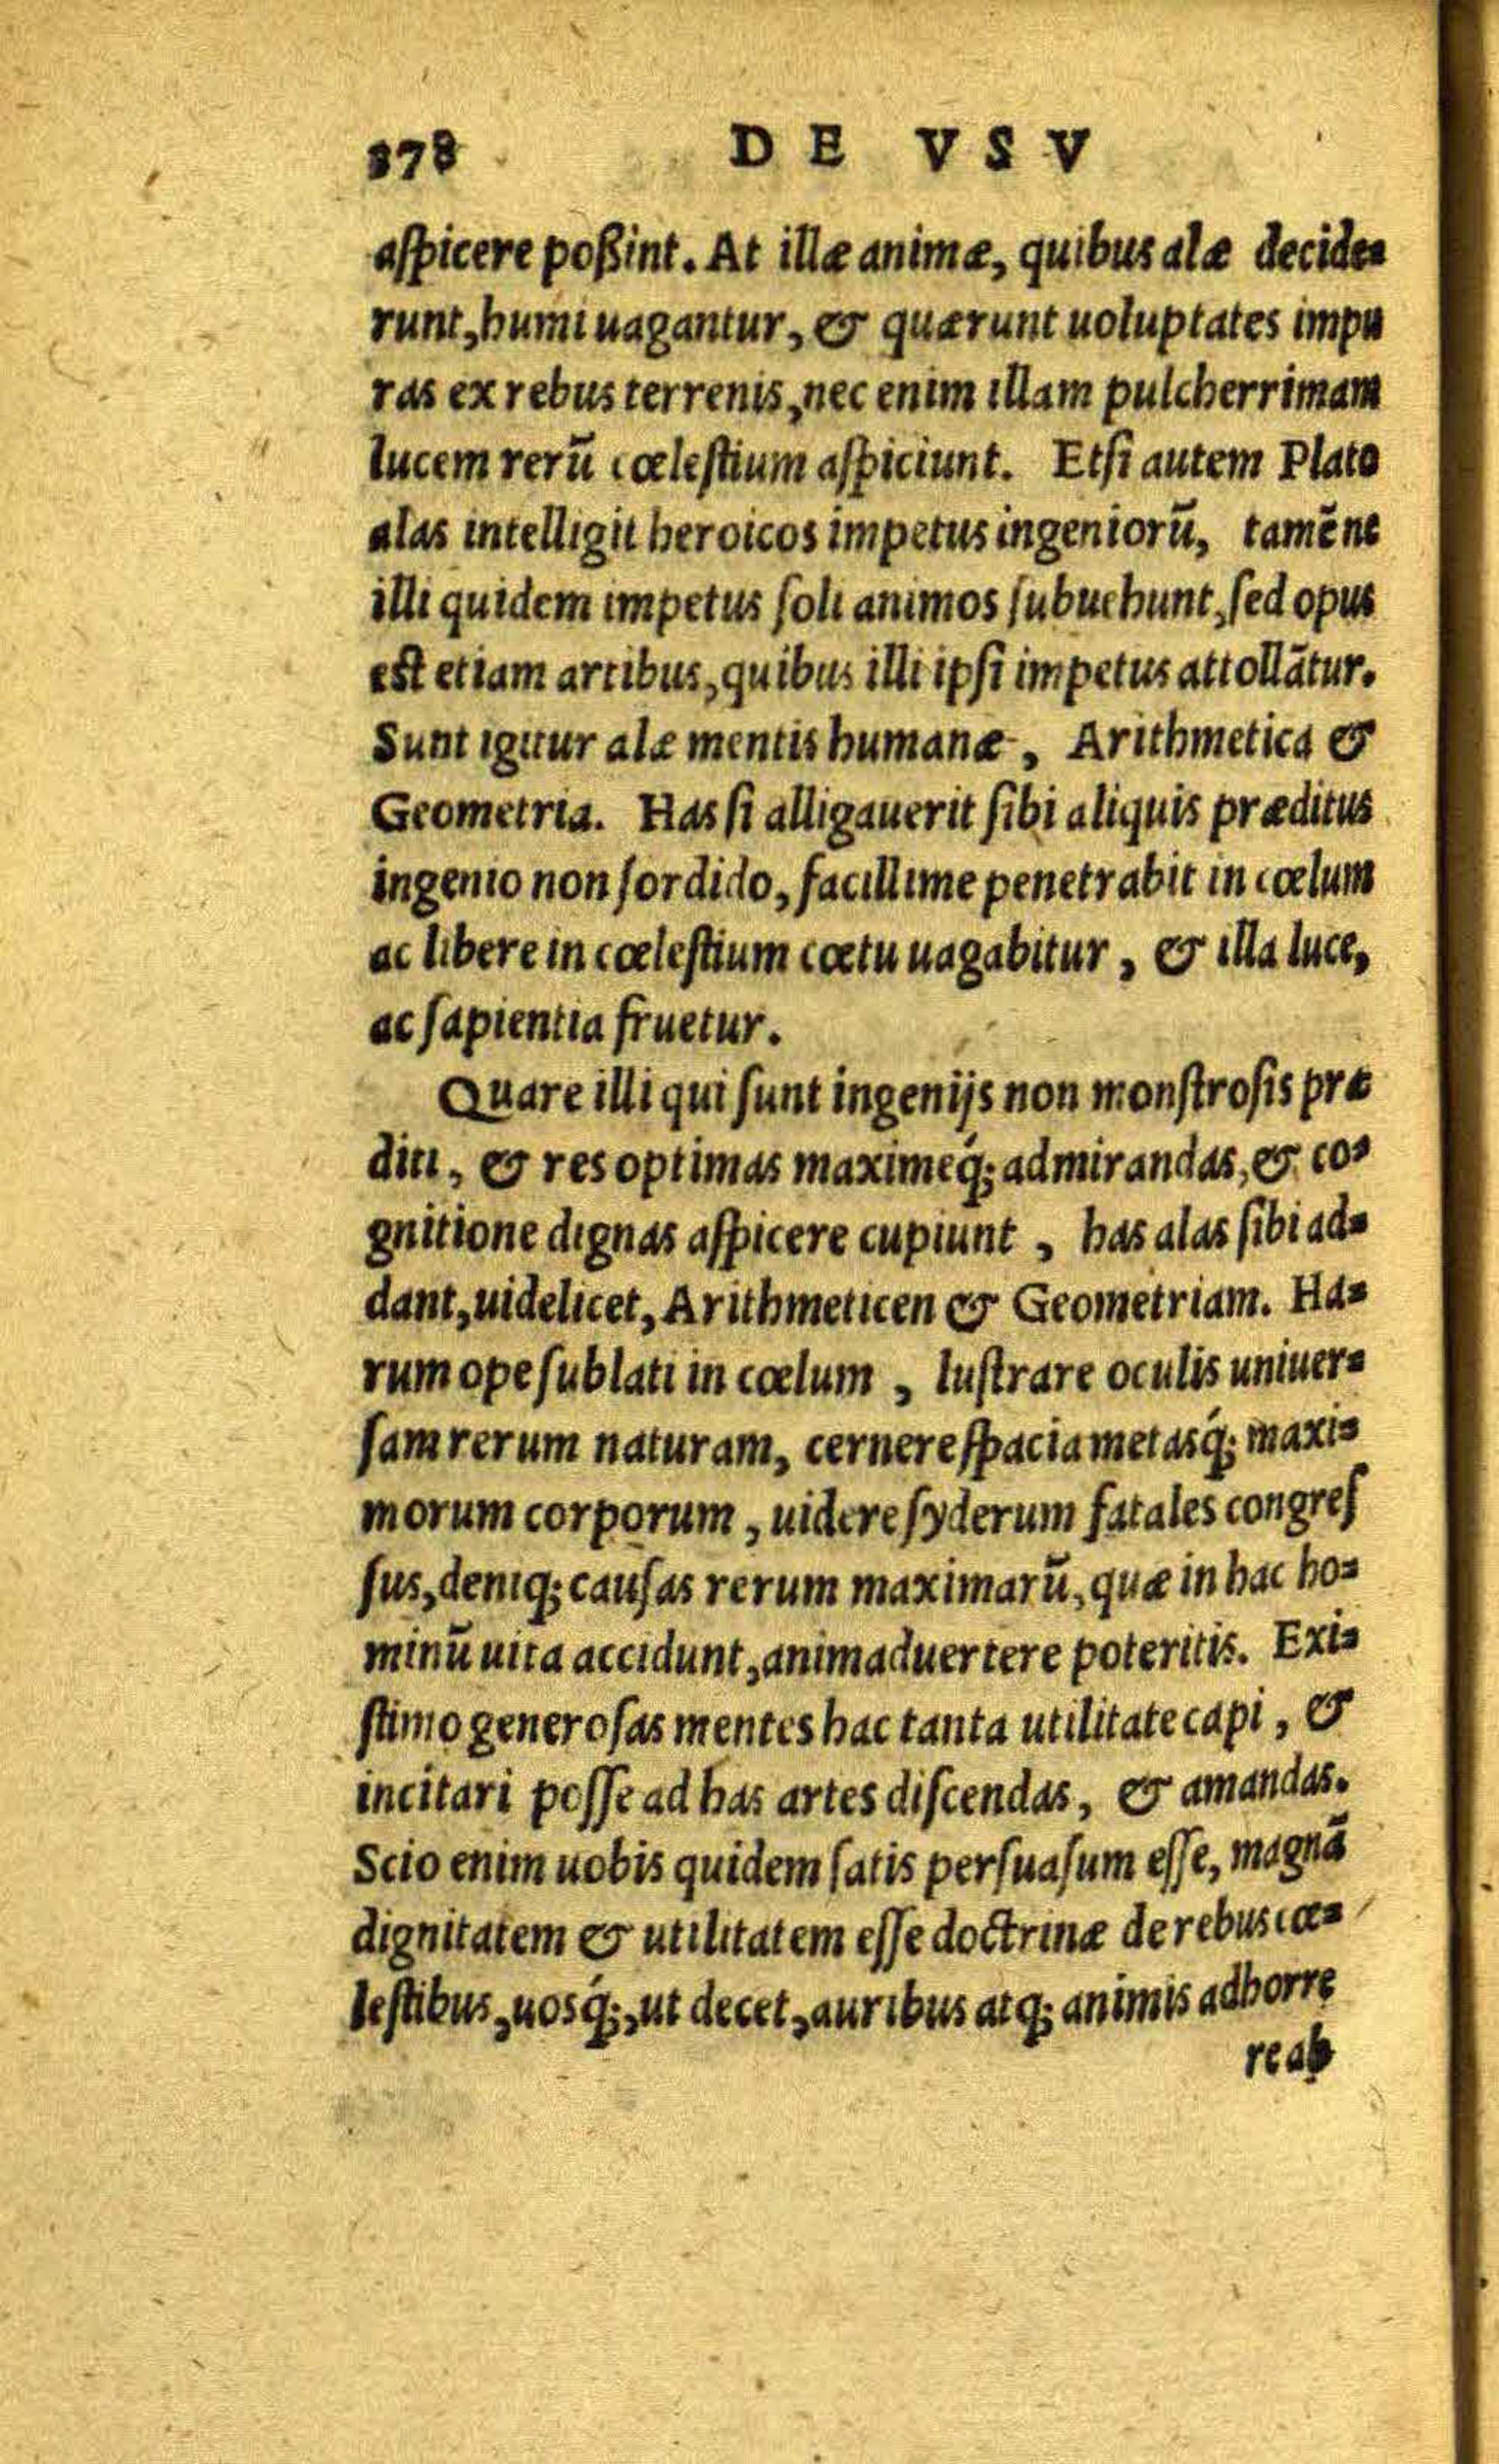 378 DE VSV
aſpicere poßint. At illæ animæ, quibus alæ decide=
runt, humi uagantur, & quærunt uoluptates impu
ras ex rebus terrenis, nec enim illam pulcherrimam
lucem rerū cœleſtium aſpiciunt. Etſi autem Plato
alas intelligit heroicos impetus ingeniorū, tamē ne
illi quidem impetus ſoli animos ſubuehunt, ſed opus
eſt etiam artibus, quibus illi ipſi impetus attollātur.
Sunt igitur alæ mentis humanæ, Arithmetica &
Geometria. Has ſi alligauerit ſibi aliquis præditus
ingenio non ſordido, facillime penetrabit in cœlum
ac libere in cœleſtium cœtu uagabitur, & illa luce,
ac ſapientia fruetur.
Quare illi qui ſunt ingenijs non monſtroſis præ
diti, & res optimas maximeq́; admirandas, & co=
gnitione dignas aſpicere cupiunt, has alas ſibi ad=
dant, uidelicet, Arithmeticen & Geometriam. Ha=
rum ope ſublati in cœlum, luſtrare oculis uniuer=
ſam rerum naturam, cernere ſpacia metasq́; maxi=
morum corporum, uidere ſyderum fatales congreſ
ſus, deniq; cauſas rerum maximarū, quæ in hac ho=
minū uita accidunt, animaduertere poteritis. Exi=
ſtimo generoſas mentes hac tanta utilitate capi, &
incitari poſſe ad has artes diſcendas, & amandas.
Scio enim uobis quidem ſatis perſuaſum eſſe, magnā
dignitatem & utilitatem eſſe doctrinæ de rebus cœ=
leſtibus, uosq́;, ut decet, auribus atq; animis adhorre
re ab